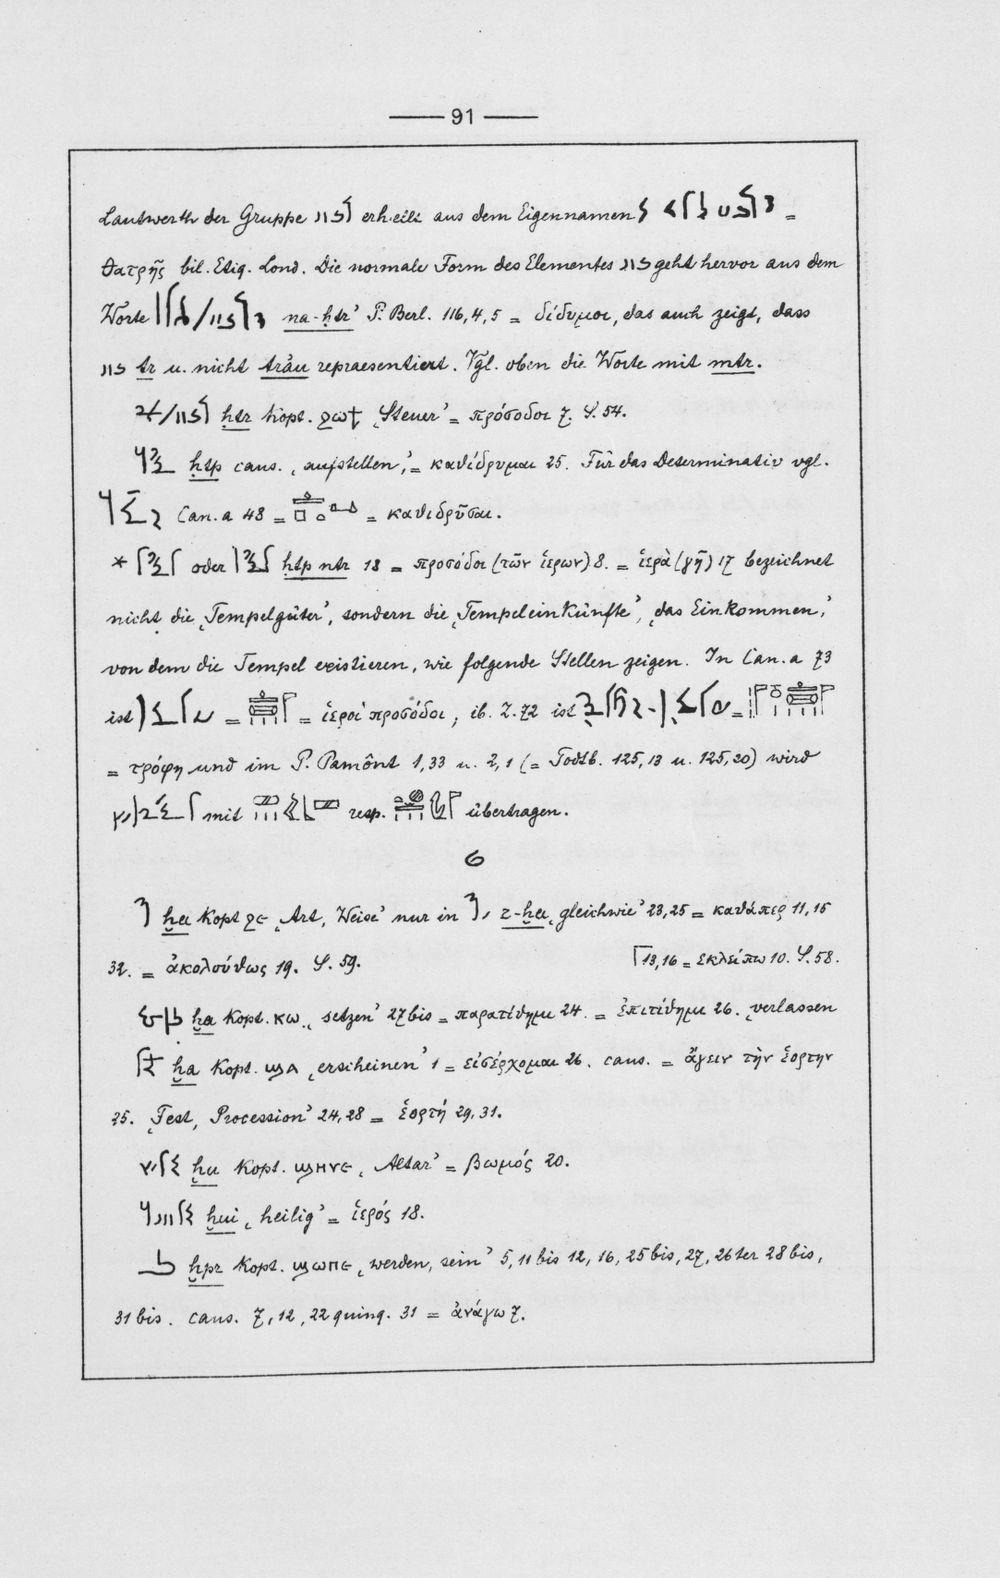 91
Lautwerth der Gruppe erhellt aus dem Eigennamen =
Θατρῆς bil. Etiq. Lond. Die normale Form des Elementes geht hervor aus dem
Worte na-ḥtr' P. Berl. 116,4,5 = δίδυμοι, das auch zeigt, dass
tr u. nicht träu repraesentiert. Vgl. oben die Worte mit mtr.
ḥtr kopt. ϩⲱϯ ‚Steuer' = πρόσοδοι 7. S. 54.
ḥtp caus. ‚aufstellen,' = καθίδρυμαι 25. Für das Determinativ vgl.
Can. a 48 = = καθιδρῦσαι.
* oder ḥtp ntr 18 = προσόδοι (τῶν ἱερων) 8. = ἱερὰ (γῆ) 17 bezeichnet
nicht die ‚Tempelgüter', sondern die ‚Tempeleinkünfte', ‚das Einkommen,'
von dem die Tempel existieren, wie folgende Stellen zeigen. In Can. a 73
ist = = ἱεροὶ προσόδοι, ib. Z. 72 ist =
= τρόφη und im P. Pamônt 1,33 u. 2,1 (= Todtb. 125,13 u. 125,20) wird
mit resp. übertragen.
ḫe kopt ϩⲉ ‚Art, Weise' nur in r-ḫe ‚gleichwie' 23,25 = καθάπερ 11,15
32. = ἀκολούθως 19. S. 59.
13,16 = εκλείπω 10. S. 58.
ḫa kopt. ⲕⲱ ‚setzen' 27 bis = παρατίθημι 24. = ἐπιτίθημι 26. ‚verlassen
ḫa kopt. ϣⲁ ‚erscheinen' 1 = εἰσέρχομαι 26. caus. = ἄγειν τὴν ἑορτην
25. ‚Fest, Procession' 24,28 = ἑορτή 29,31.
ḫu kopt. ϣⲏⲩⲉ ‚Altar' = βωμός 20.
ḫui ‚heilig' = ἱερός 18.
ḫpr kopt. ϣⲱⲡⲉ ‚werden, sein' 5, 11 bis 12, 16, 25 bis, 27, 26 ter 28 bis,
31 bis. caus. 7, 12, 22 quinq. 31 = ἀνάγω 7.